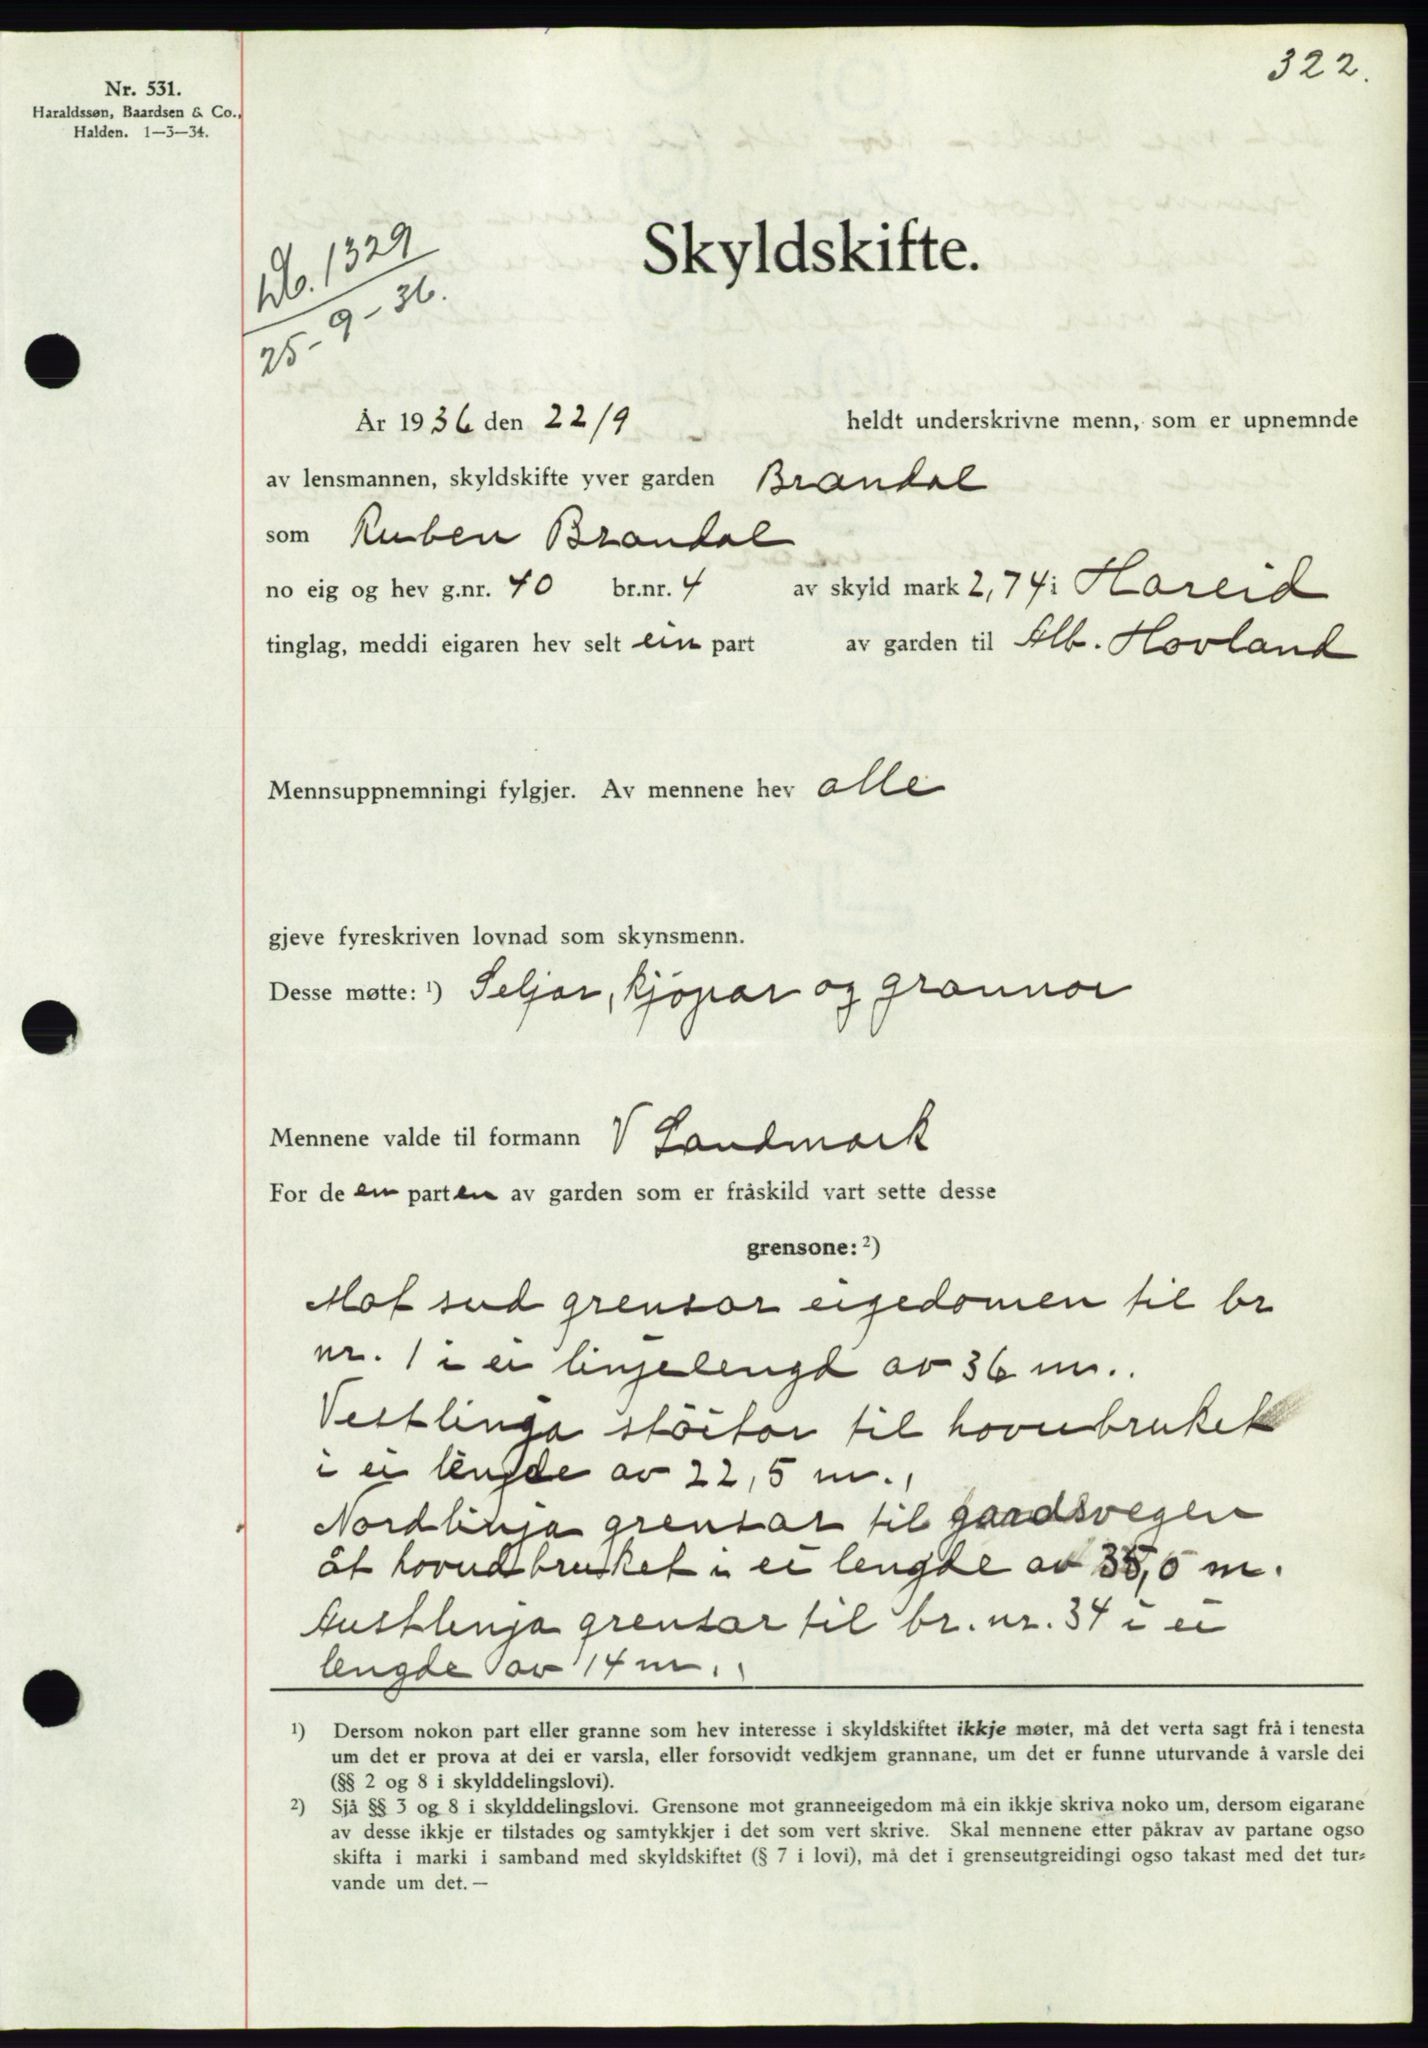 322.
Nr. 531.
Haraldssøn, Baardsen & Co.,
Halden. 1—3—34.
Skyldskifte.
Db. 1329
25-9-36.
År 1936 den 22/9 heldt underskrivne menn, som er upnemnde
av lensmannen, skyldskifte yver garden Brandal
som Ruben Brandal
no eig og hev g.nr. 40 br.nr. 4 av skyld mark 2,74 i Hareid
tinglag, meddi eigaren hev selt ein part av garden til Alb. Hovland
Mennsuppnemningi fylgjer. Av mennene hev alle
gjeve fyreskriven lovnad som skynsmenn.
Desse møtte: ¹) Seljar, kjöpar og grannar
Mennene valde til formann V Landmark
For de en parten av garden som er fråskild vart sette desse
grensone: ²)
Mot sud grensar eigedomen til br
nr. 1 i ei linjelengd av 36 m..
Vestlinga stöitar til hovubruket
i ei lengde av 22,5 m.,
Nordlinja grensar til gardsvegen
åt hovudbruket i ei lengde av 35,0 m.
Austlinja grensar til br. nr. 34 i ei
lengde av 14 m.,
¹) Dersom nokon part eller granne som hev interesse i skyldskiftet ikkje møter, må det verta sagt frå i tenesta
um det er prova at dei er varsla, eller forsovidt vedkjem grannane, um det er funne uturvande å varsle dei
(§§ 2 og 8 i skylddelingslovi).
²) Sjå §§ 3 og 8 i skylddelingslovi. Grensone mot granneeigedom må ein ikkje skriva noko um, dersom eigarane
av desse ikkje er tilstades og samtykkjer i det som vert skrive. Skal mennene etter påkrav av partane ogso
skifta i marki i samband med skyldskiftet (§ 7 i lovi), må det i grenseutgreidingi ogso takast med det tur-
vande um det. —